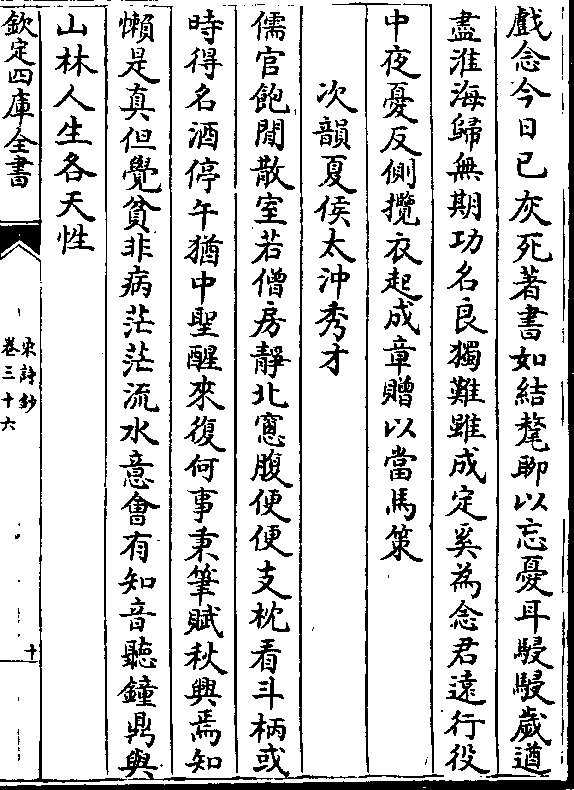 戲念今日已灰死著書如結氂聊以忘憂耳駸駸歲遒
盡淮海歸無期功名良獨難雖成定奚為念君遠行役
中夜憂反側攬衣起成章贈以當馬策
次韻夏侯太沖秀才
儒官飽閒散室若僧房靜北窻腹便便支枕看斗柄或
時得名酒停午猶中聖醒來復何事秉筆賦秋興焉知
懶是真但覺貧非病茫茫流水意會有知音聽鐘鼎與
山林人生各天性
欽定四庫全書
宋詩鈔
卷三十六
十